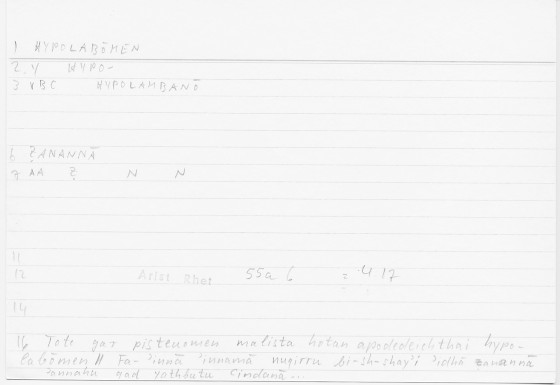 1 HYPOLABŌMEN
2 Y HYPO-
3 ABC HYPOLAMBANŌ
6 ẒANANNĀ
7 AA Ẓ N N
11
12 Arist Rhet 55a 6 = 4 17
14
16 Tote gar pisteuomen malista hotan apodedeichthai hypo-
labōmen // Fa-'innā 'innamā nuqirru bi-sh-shay'i 'idhā ẓanannā
'annahu qad yathbutu ʿindanā...